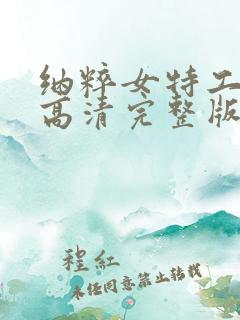 纳粹女特工
高清完整版
程红
未经同意禁止转载